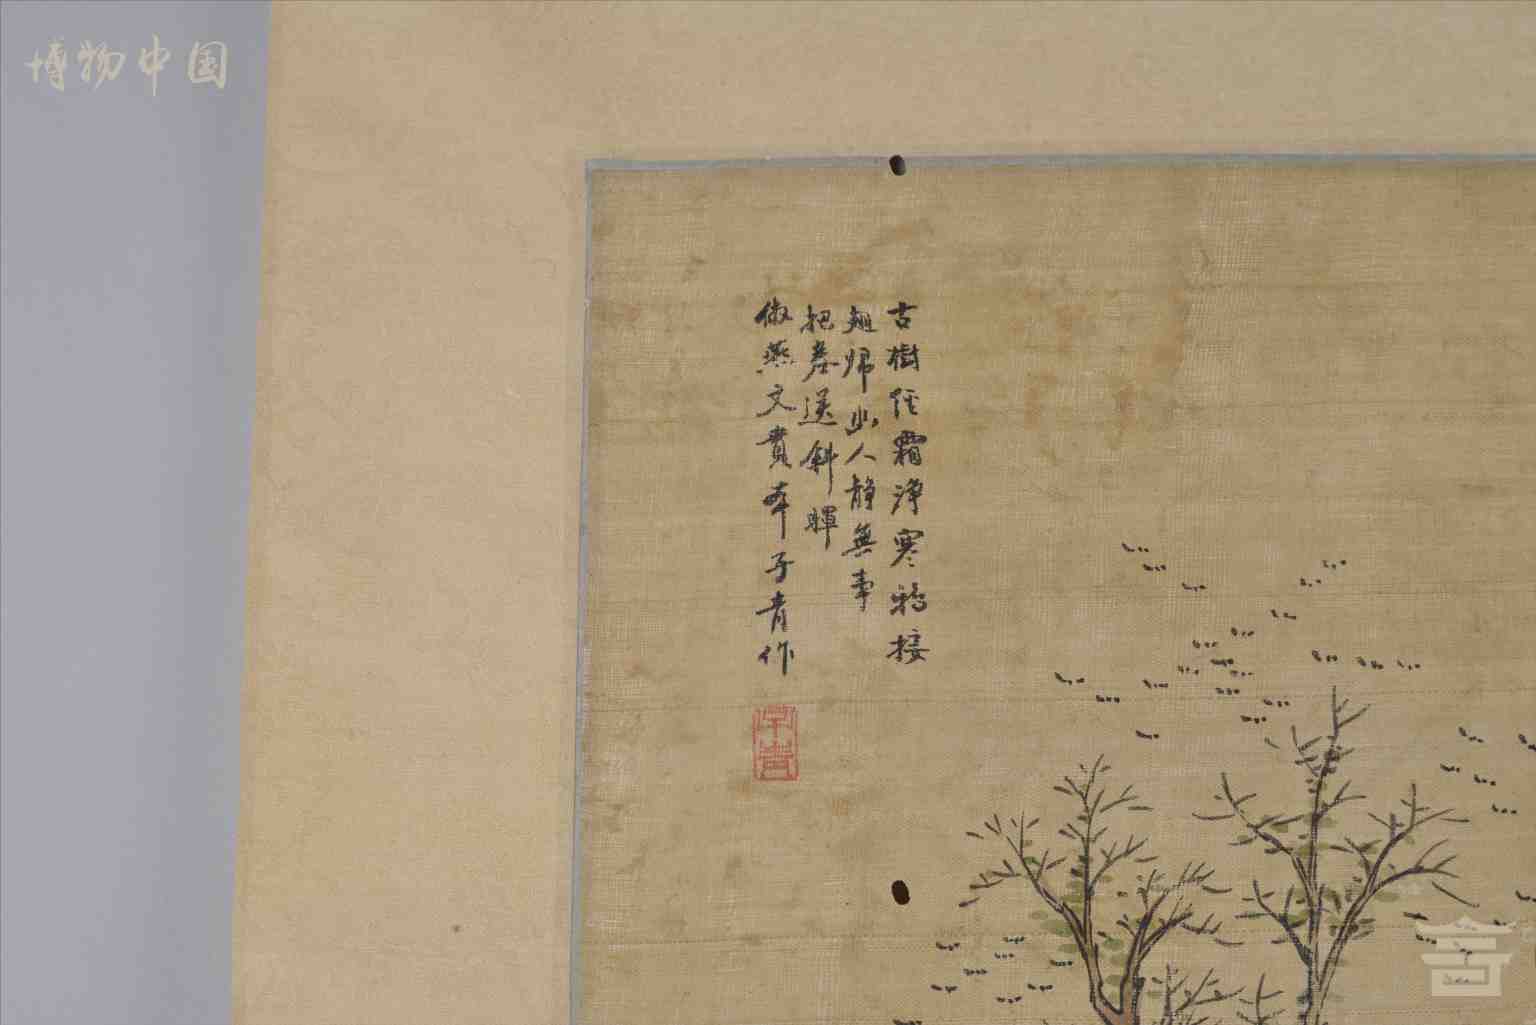 博物中国
古樹經霜淨寒鴉接
翅歸幽人靜無事
把卷送斜暉
倣燕文貴本子青作
子青